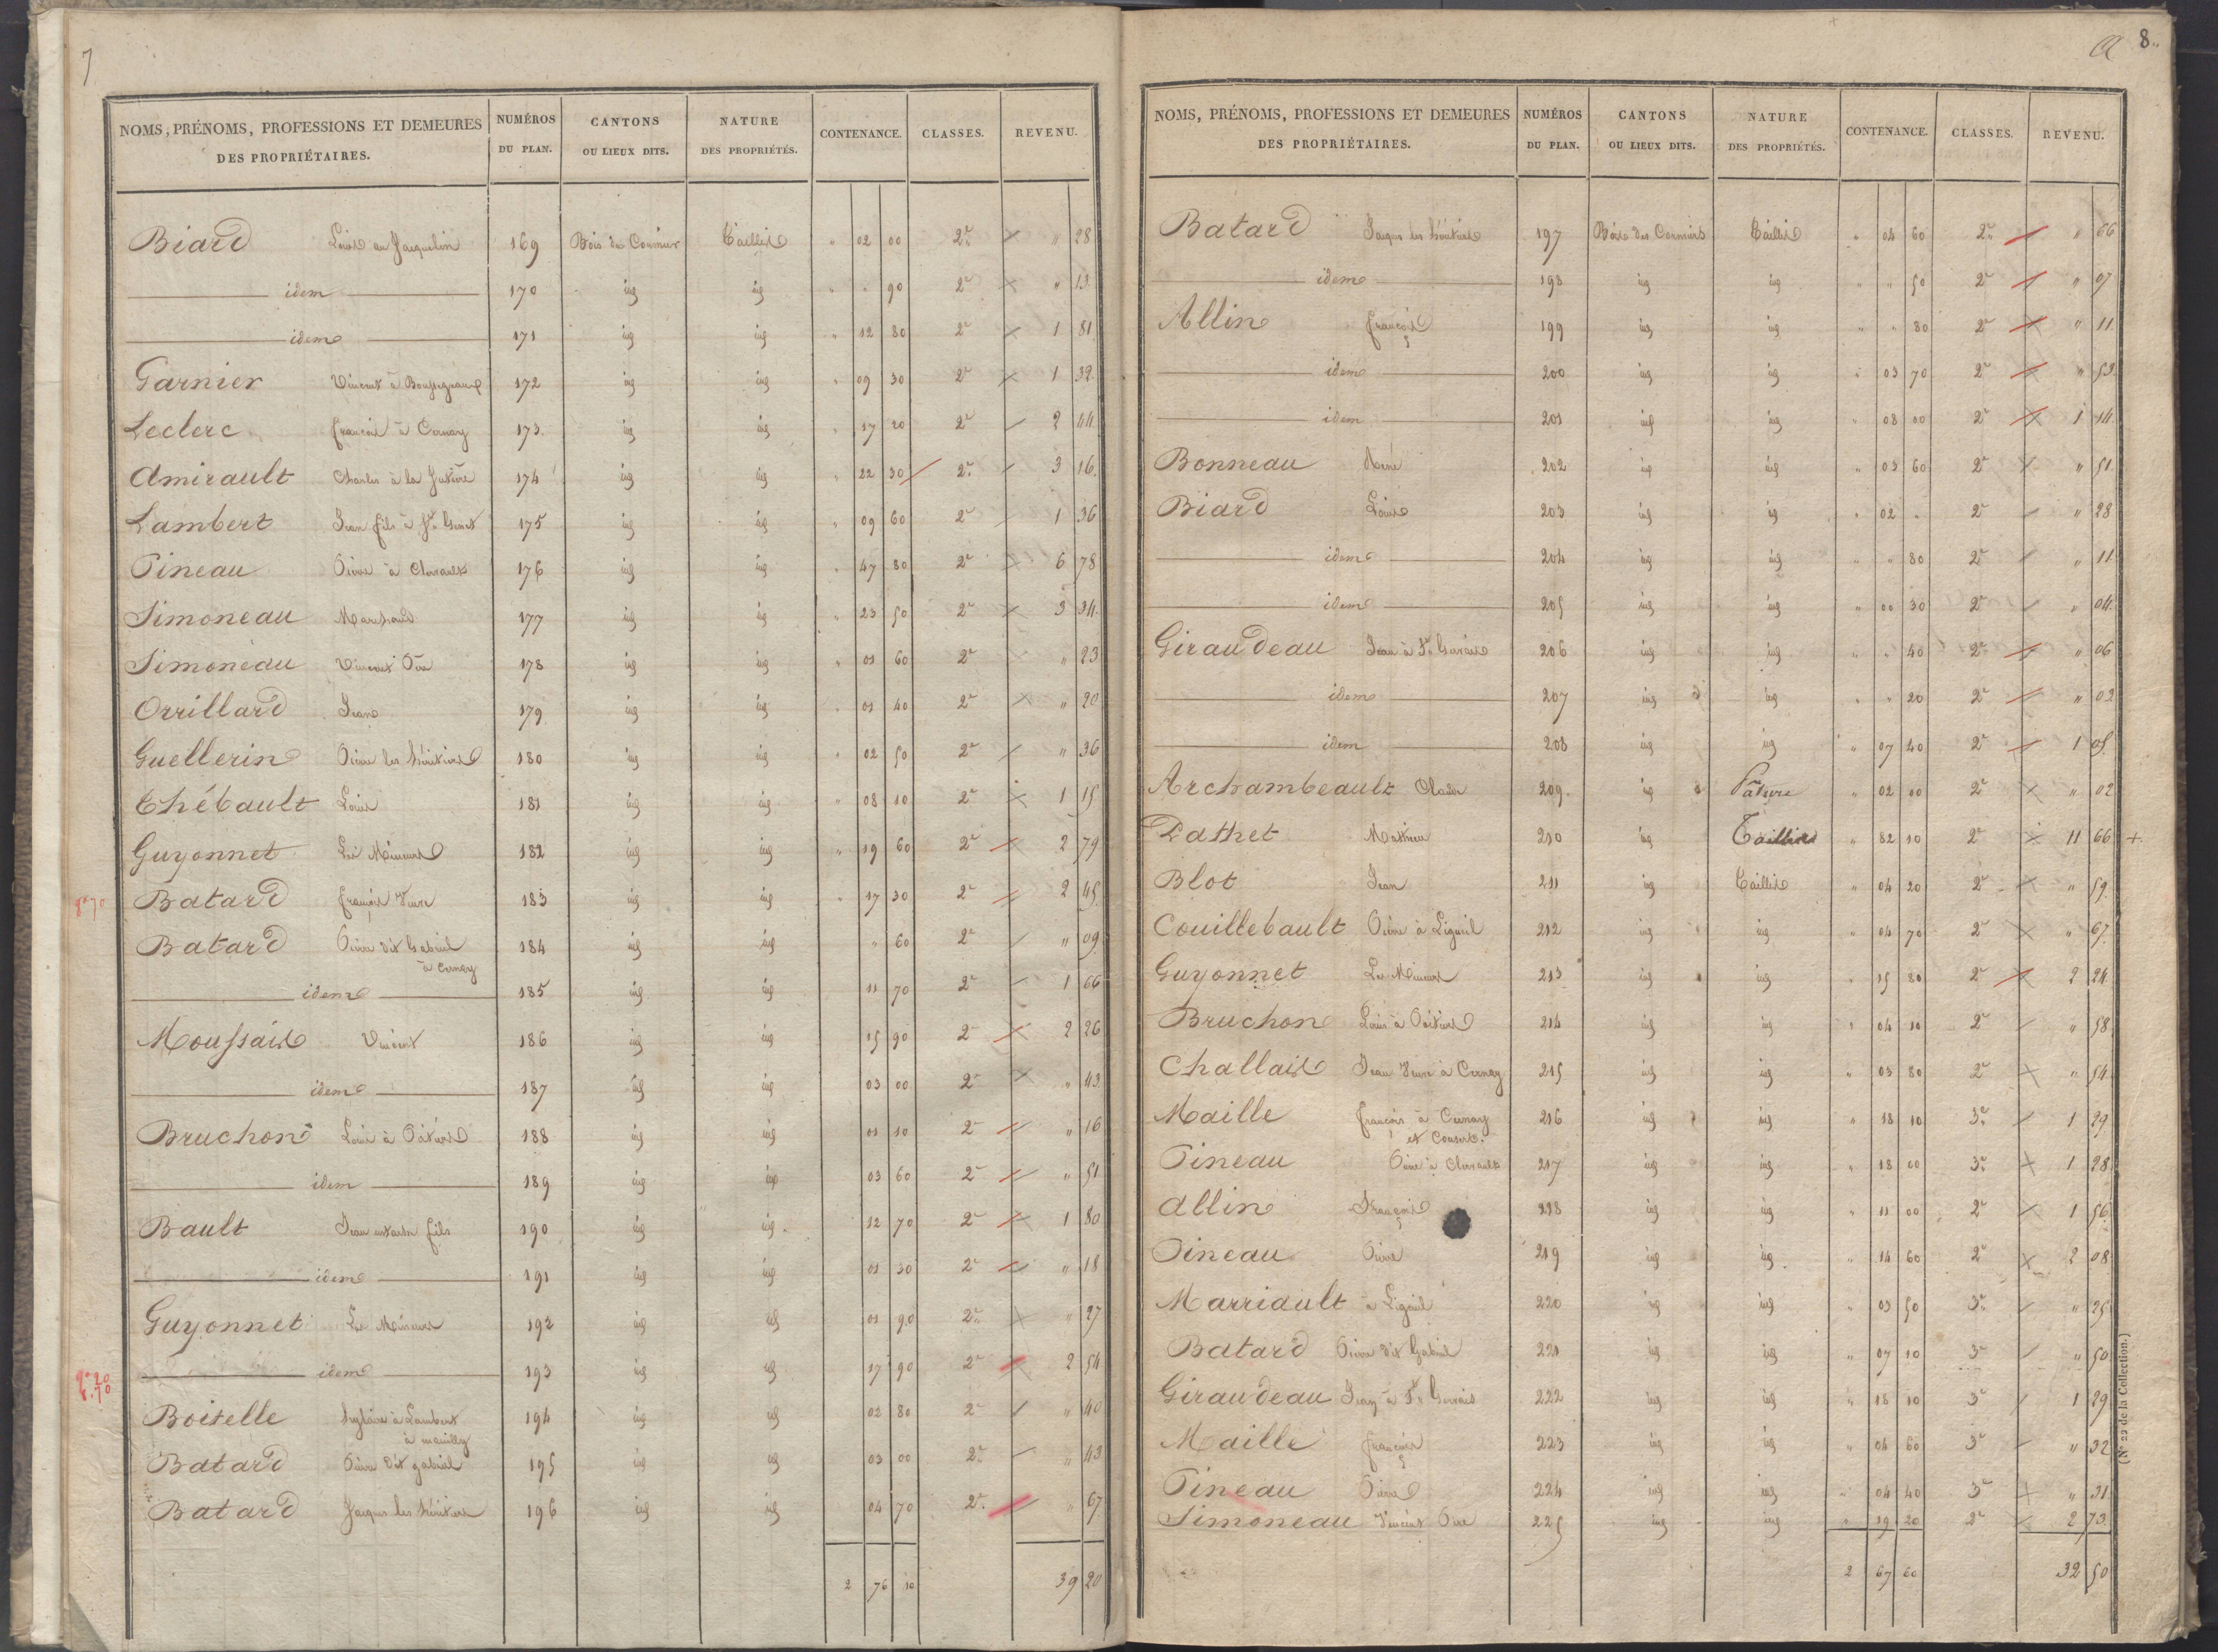 7
NOMS, PRÉNOMS, PROFESSIONS ET DEMEURES DES PROPRIÉTAIRES. NUMÉROS DU PLAN. CANTONS OU LIEUX DITS. NATURE DES PROPRIÉTÉS. CONTENANCE. CLASSES. REVENU.
Biard Louis au Jacquelin 169 Bois des Cormiers Taillis " 02 00 2e " 28
idem 170 id id " " 90 2e " 13
idem 171 id id " 12 80 2e 1 81
Garnier Vincent à 172 id id " 09 30 2e 1 32
Leclerc françois à Cernay 173 id id " 17 20 2e 2 44
Amirault Charles à la 174 id id " 22 30 2e 3 16
Lambert Jean fils à St Genest 175 id id " 09 60 2e 1 36
Pineau Pierre à Clervault 176 id id " 47 80 2e 6 78
Simoneau Marchand 177 id id " 23 50 2e 3 34
Simoneau Vincent Père 178 id id " 01 60 2e " 23
Orrillard Jean 179 id id " 01 40 2e " 20
Guellerin Pierre les héritiers 180 id id " 02 50 2e " 36
Thébault Louis 181 id id " 08 10 2e 1 15
Guyonnet Les Mineurs 182 id id " 19 60 2e 2 79
Batard françois Veuve 183 id id " 17 30 2e 2 45
Batard Pierre dit Gabriel à Cernay 184 id id " 60 2e " 09
idem 185 id id 11 70 2e 1 66
Moussais Vincent 186 id id 15 90 2e 2 26
idem 187 id id 03 00 2e " 43
Bruchon Louis à Poitiers 188 id id 01 10 2e " 16
idem 189 id id 03 60 2e " 51
Bault Jean fils 190 id id 12 70 2e 1 80
idem 191 id id 01 30 2e " 18
Guyonnet Les Mineurs 192 id id 01 90 2e " 27
idem 193 id id 17 90 2e 2 54
Boiselle hylaire à Lambert 194 id id 02 80 2e " 40
Batard Pierre dit gabriel 195 id id 03 00 2e " 43
Batard Jacques les héritiers 196 id id 04 70 2e " 67
2 76 10 39 20
8
NOMS, PRÉNOMS, PROFESSIONS ET DEMEURES DES PROPRIÉTAIRES. NUMÉROS DU PLAN. CANTONS OU LIEUX DITS. NATURE DES PROPRIÉTÉS. CONTENANCE. CLASSES. REVENU.
Batard Jacques les héritiers 197 Bois des Cormiers Taillis " 04 60 2e " 66
idem 198 id id " " 50 2e " 07
Allin françois 199 id id " " 80 2e " 11
idem 200 id id " 03 70 2e " 53
idem 201 id id " 08 00 2e 1 14
Bonneau René 202 id id " 03 60 2e " 51
Biard Louis 203 id id " 02 " 2e " 28
idem 204 id id " " 80 2e " 11
idem 205 id id " 00 30 2e " 04
Giraudeau Jean à St Gervais 206 id id " " 40 2e " 06
idem 207 id id " " 20 2e " 02
idem 208 id id " 07 40 2e 1 05
Archambeault 209 id Pature " 02 00 2e " 02
Pathet Mathieu 210 id Taillis " 82 10 2e 11 66 +
Blot Jean 211 id Taillis " 04 20 2e " 59
Couillebault Pierre à Ligueil 212 id id " 04 70 2e " 67
Guyonnet Les Mineurs 213 id id " 15 80 2e 2 24
Bruchon Louis à Poitiers 214 id id " 04 10 2e " 58
Challais Jean Veuve à Cernay 215 id id " 03 80 2e " 54
Maille françois à Cernay et Consorts 216 id id " 18 10 3e 1 29
Pineau Pierre à Clervault 217 id id " 18 00 3e 1 28
Allin François 218 id id " 11 00 2e 1 56
Pineau Pierre 219 id id " 14 60 2e 2 08
Marriault à Ligueil 220 id id " 03 50 3e " 25
Batard Pierre dit Gabriel 221 id id " 07 10 3e " 50
Giraudeau Jean à St Gervais 222 id id " 18 10 3e 1 29
Maille françois 223 id id " 04 60 3e " 32
Pineau Pierre 224 id id " 04 40 3e " 31
Simoneau Vincent Père 225 id id " 19 20 2e 2 73
2 67 60 32 50
(N° 22 de la Collection.)